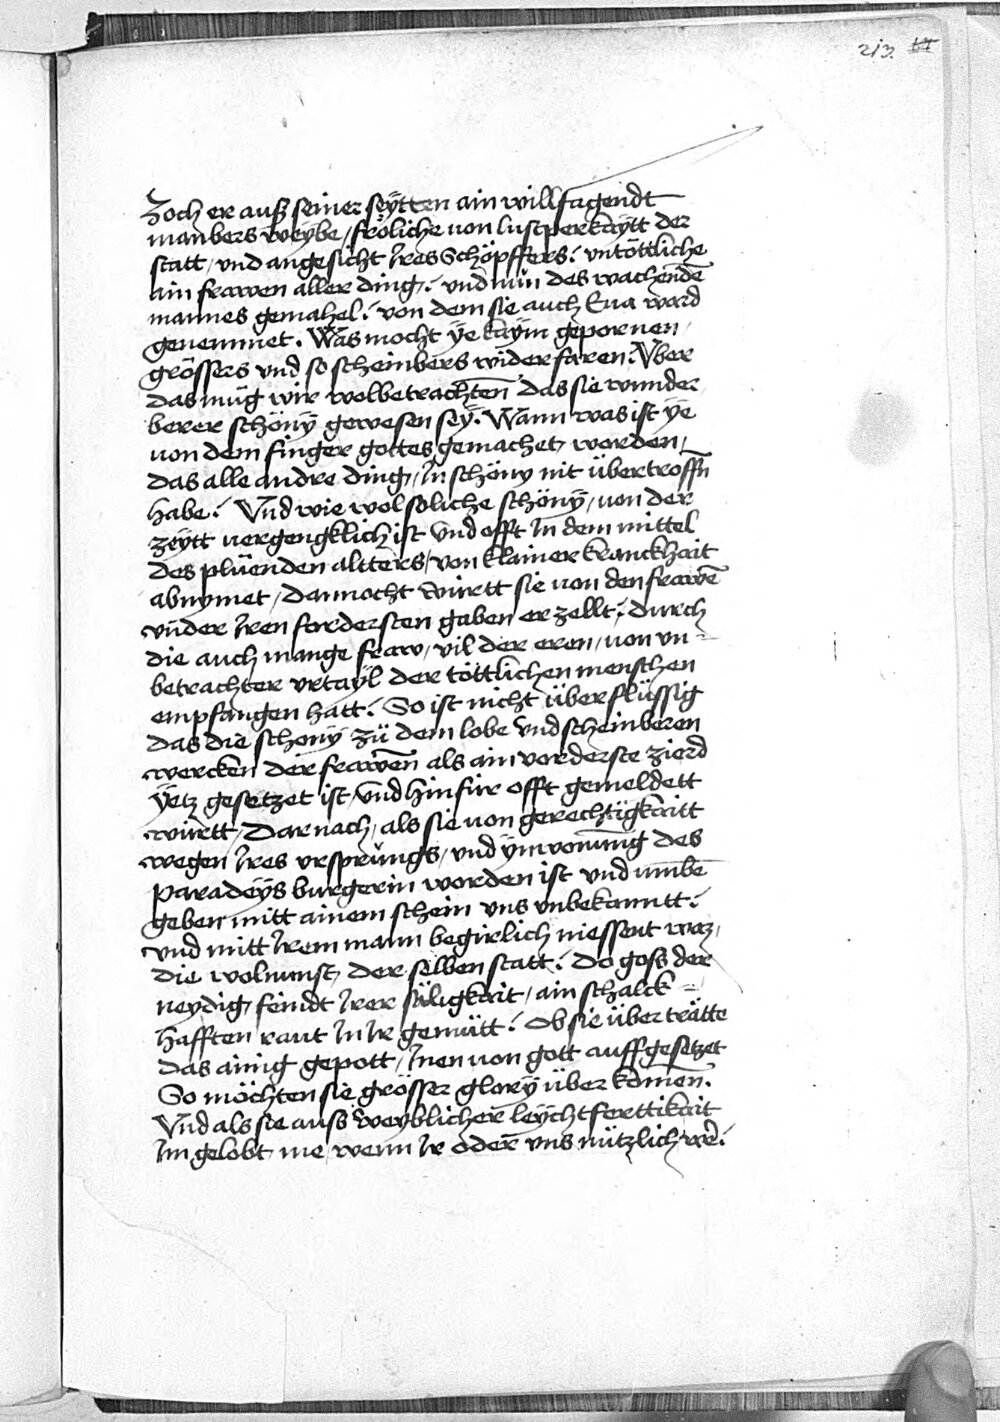 213.
Zoch er auß seiner seÿtten ain willsagendt
manbers weÿbe / fröliche von lustperkaÿtt der
statt / vnd angesicht Ires Schöpffers / vntöttliche
ain frawen aller ding / vnd nün des wachenden̄
mannes gemahel / von dem sie auch Eua ward
genemnet. Was mocht ÿe kaÿm gepornen /
grössers vnd so scheinbers widerfaren / Vber
das müg wir wolbetrachten̄ das sie wunder
berer schönÿ gewesen seÿ. Wann was ist ÿe
von dem finger gottes gemachet worden /
das alle andre ding / In schöny nit übertroffn̄
habe / Vnd wie wol soliche schönÿ / von der
zeÿtt vergengklich ist vnd offt In dem mittel
des plüenden altters / von klainer kranckhait
abnymet / dannocht württ sie von den frawē
vnder Iren fordersten gaben erzellt / durch
die auch mange fraw / vil der eren / von vn=
betrachter vrtaÿl der töttlichen menschen
empfangen hatt / So ist nicht überflüssig
das die schonÿ zü dem lobe vnd scheinberen
wercken der frawen̄ als ain vorderste zierd
ÿetz gesetzet ist / vnd hinfür offt gemeldett
württ / Darnach / als sie von gerechtigkaitt
wegen Ires vrsprüngs / vnd ÿnwonūng des
paradeÿs burgerin worden ist vnd vmbē
geben mitt ainem schein vns vnbekanntt /
vnd mitt Irem mann begirlich niessent waz /
die wolnunst / der selben statt / Do goss der
neydig / feindt Irer säligkait / ain schalck=
hafften raut In Ir gemütt / Ob sie überträtte
das ainig gepott / Inen von gott auffgesetzet
So möchten sie grösser glorÿ überkomen̄.
Vnd als sie auss weyblicher̄ leÿchtferttikait
Im gelobt me / wenn Ir oder̄ vns nützlich wē /